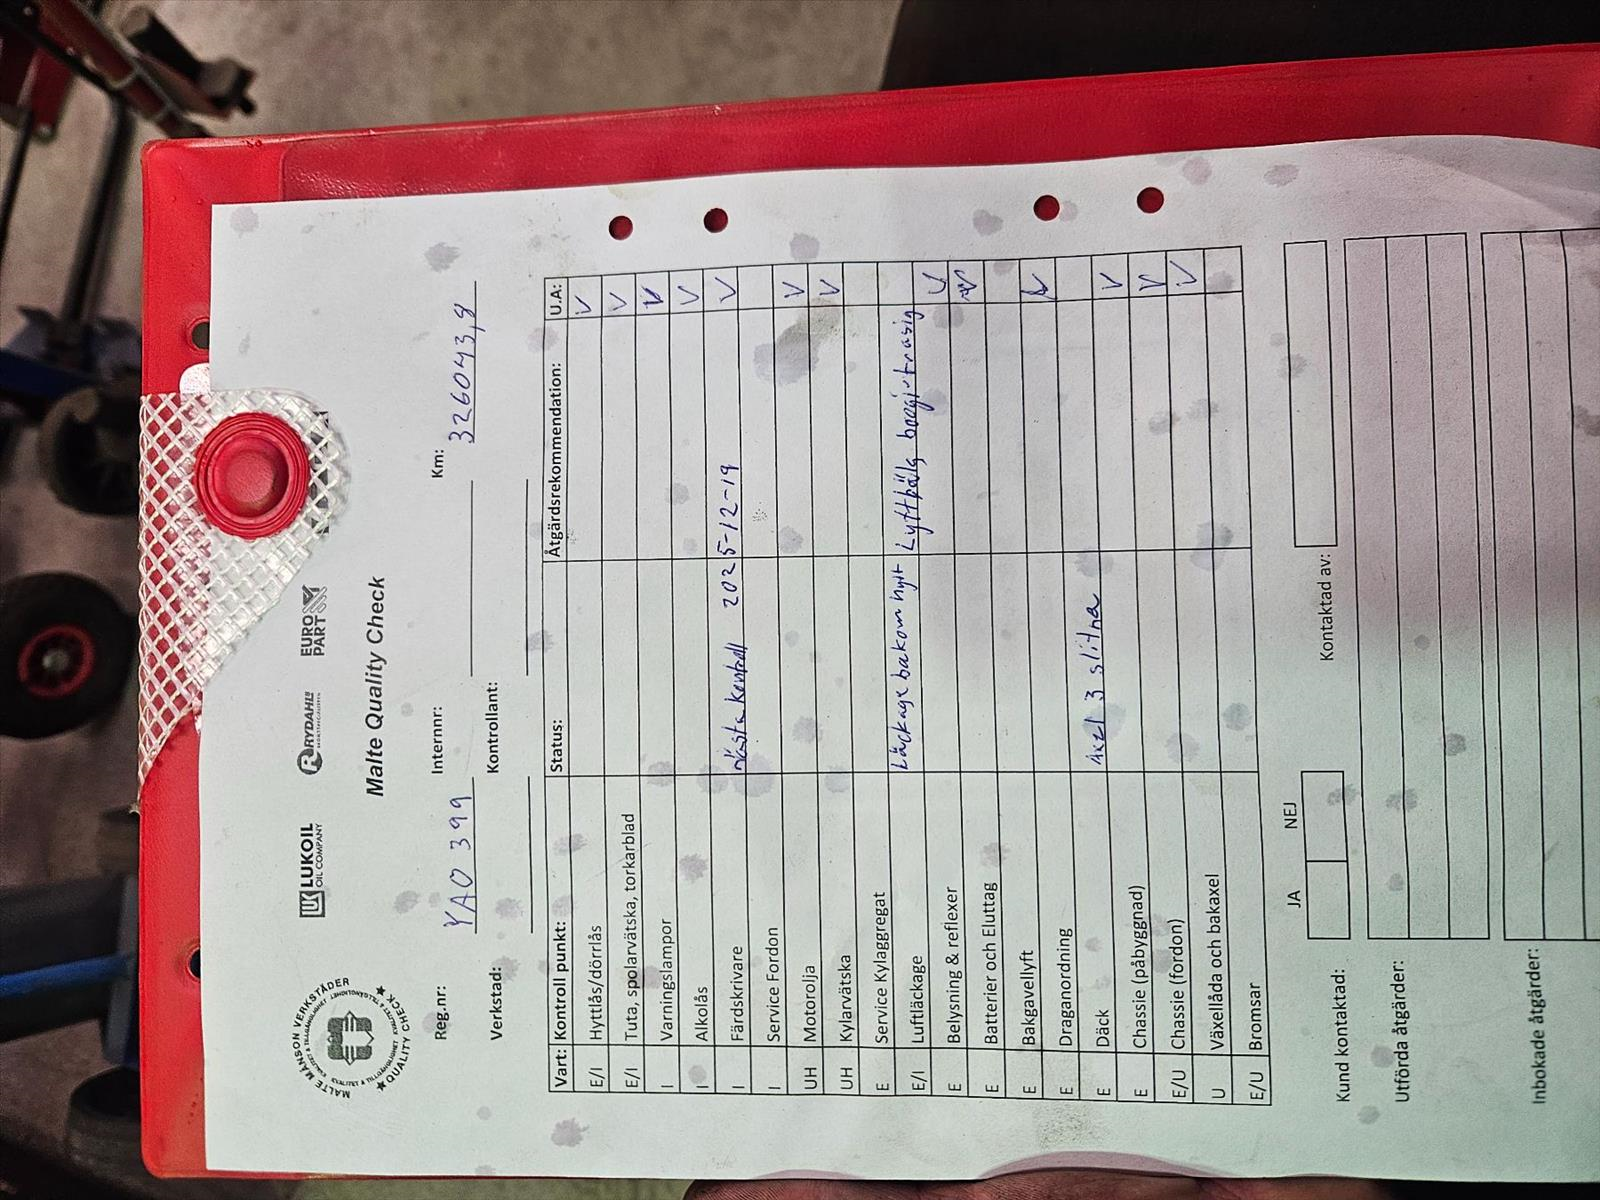 MALTE MÅNSON VERKSTÄDER
QUALITY CHECK
LUKOIL
OIL COMPANY
RYDAHLS
EURO
PART
Malte Quality Check
Reg.nr: YAO 399 Internnr: Km: 326043,8
Verkstad: Kontrollant:
Vart: Kontroll punkt: Status: Åtgärdsrekommendation: U.A:
E/I Hyttlås/dörrlås V
E/I Tuta, spolarvätska, torkarblad V
I Varningslampor V
I Alkolås V
I Färdskrivare Nästa kontroll 2025-12-19 V
I Service Fordon
UH Motorolja V
UH Kylarvätska V
E Service Kylaggregat
E/I Luftläckage Läckage bakom hytt Lyftbälg boogie trasig V
E Belysning & reflexer V
E Batterier och Eluttag
E Bakgavellyft V
E Draganordning
E Däck Axel 3 slitna V
E Chassie (påbyggnad) V
E/U Chassie (fordon) V
U Växellåda och bakaxel
E/U Bromsar
JA NEJ
Kund kontaktad: Kontaktad av:
Utförda åtgärder:
Inbokade åtgärder: